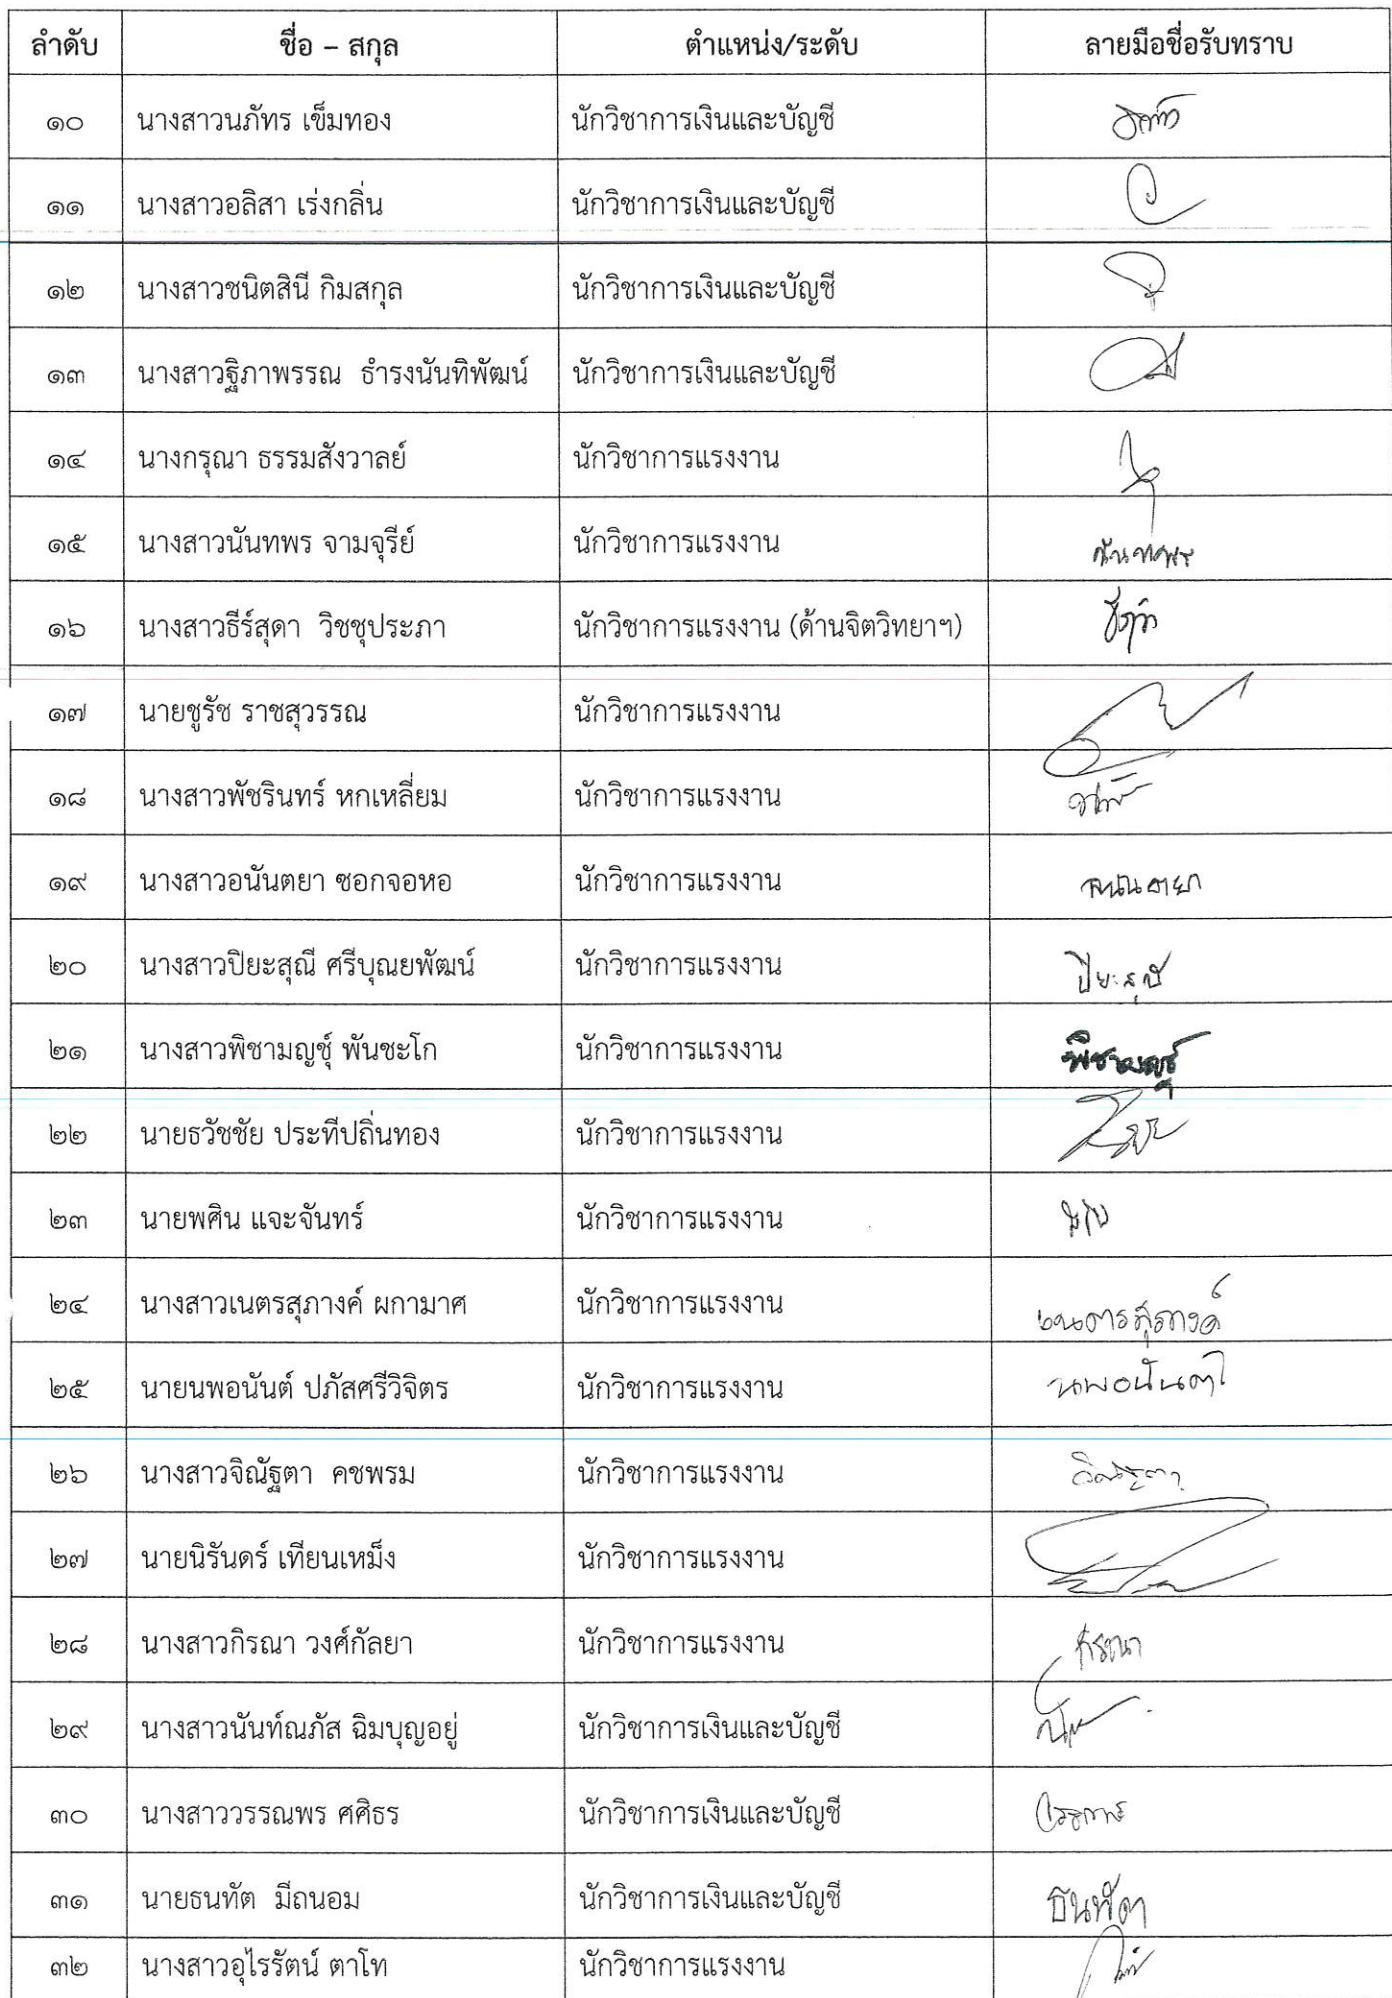 ลำดับ ชื่อ – สกุล ตำแหน่ง/ระดับ ลายมือชื่อรับทราบ
๑๐ นางสาวนภัทร เข็มทอง นักวิชาการเงินและบัญชี
๑๑ นางสาวอลิสา เร่งกลิ่น นักวิชาการเงินและบัญชี
๑๒ นางสาวชนิตสินี กิมสกุล นักวิชาการเงินและบัญชี
๑๓ นางสาวฐิภาพรรณ ธำรงนันทิพัฒน์ นักวิชาการเงินและบัญชี
๑๔ นางกรุณา ธรรมสังวาลย์ นักวิชาการแรงงาน
๑๕ นางสาวนันทพร จามจุรีย์ นักวิชาการแรงงาน นันทพร
๑๖ นางสาวธีร์สุดา วิชชุประภา นักวิชาการแรงงาน (ด้านจิตวิทยาฯ)
๑๗ นายชูรัช ราชสุวรรณ นักวิชาการแรงงาน
๑๘ นางสาวพัชรินทร์ หกเหลี่ยม นักวิชาการแรงงาน
๑๙ นางสาวอนันตยา ซอกจอหอ นักวิชาการแรงงาน อนันตยา
๒๐ นางสาวปิยะสุณี ศรีบุณยพัฒน์ นักวิชาการแรงงาน ปิยะสุณี
๒๑ นางสาวพิชามญชุ์ พันชะโก นักวิชาการแรงงาน พิชามญชุ์
๒๒ นายธวัชชัย ประทีปถิ่นทอง นักวิชาการแรงงาน
๒๓ นายพศิน แจะจันทร์ นักวิชาการแรงงาน
๒๔ นางสาวเนตรสุภางค์ ผกามาศ นักวิชาการแรงงาน เนตรสุภางค์
๒๕ นายนพอนันต์ ปภัสศรีวิจิตร นักวิชาการแรงงาน นพอนันต์
๒๖ นางสาวจิณัฐตา คชพรม นักวิชาการแรงงาน จิณัฐตา
๒๗ นายนิรันดร์ เทียนเหม็ง นักวิชาการแรงงาน
๒๘ นางสาวกิรณา วงศ์กัลยา นักวิชาการแรงงาน กิรณา
๒๙ นางสาวนันท์ณภัส ฉิมบุญอยู่ นักวิชาการเงินและบัญชี
๓๐ นางสาววรรณพร ศศิธร นักวิชาการเงินและบัญชี
๓๑ นายธนทัต มีถนอม นักวิชาการเงินและบัญชี ธนทัต
๓๒ นางสาวอุไรรัตน์ ตาโท นักวิชาการแรงงาน